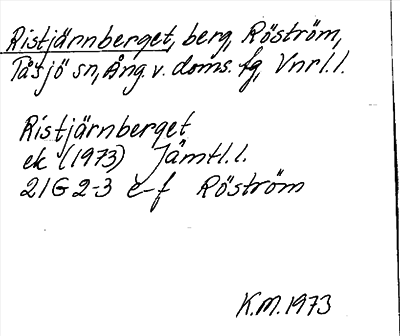 Ristjärnberget, berg, Röström,
Tåsjö sn, Ång v. doms. fg, Vnrl.l.
Ristjärnberget
ek (1973) Jämtl.l.
21G 2-3 e-f Röström
K.M. 1973